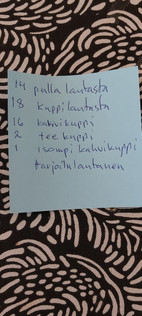 14 pullalautasta
18 kuppilautasta
16 kahvikuppi
2 teekuppi
1 isompi kahvikuppi
tarjoilulautanen